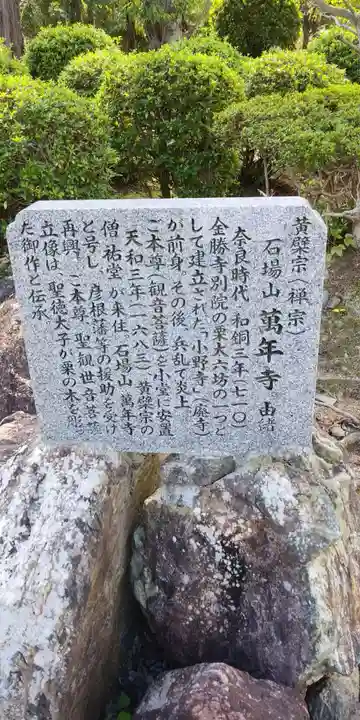 黄檗宗(禅宗)
石場山 萬年寺 由緒
奈良時代 和銅三年(七一〇)
金勝寺別院の栗太六坊の一つと
して建立された「小野寺」(廃寺)
が前身。その後、兵乱で炎上
ご本尊(観音菩薩)を小堂に安置
天和三年(一六八三) 黄檗宗の
僧 祐堂 が来住 石場山 萬年寺
と号し 彦根藩等の援助を受け
再興、ご本尊 聖観世音菩薩
立像は 聖徳太子が栗の木を彫っ
た御作と伝承